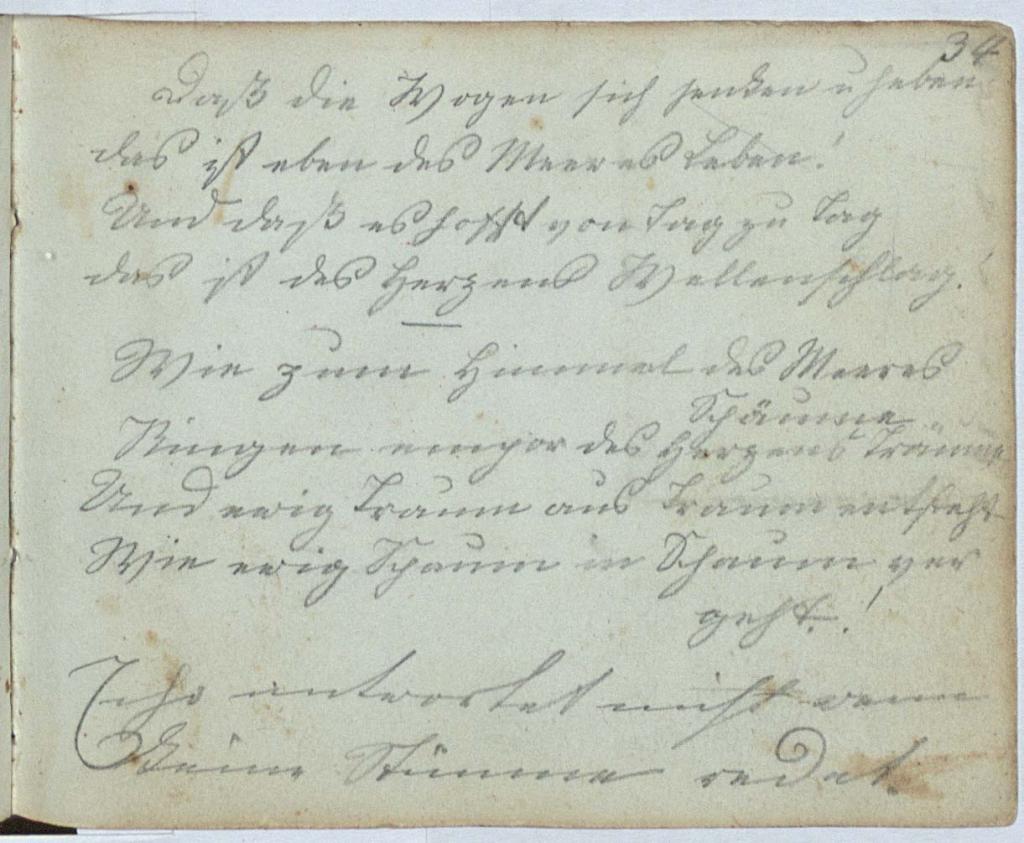 34
Daß die Wogen sich senken u heben
das ist eben des Meeres Leben!
Und daß es hofft von Tag zu Tag
das ist des Herzens Wellenschlag!
Wie zum Himmel des Meeres
Schäume
Ringen empor des Herzens Träume
Und ewig Traum aus Traum entsteht
Wie ewig Schaum in Schaum ver
geht.!
antwortet nicht wenn
Deine Stimme redet.